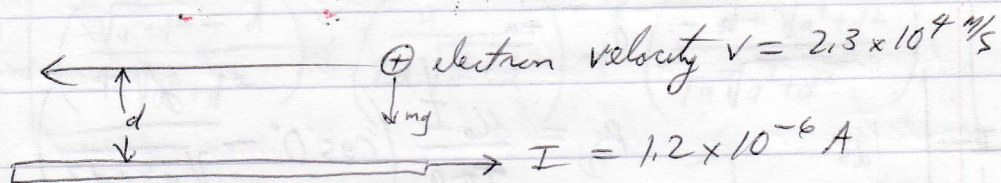 ⊕ electron velocity V = 2.3 x 10⁴ m/s
d
mg
I = 1.2 x 10⁻⁶ A